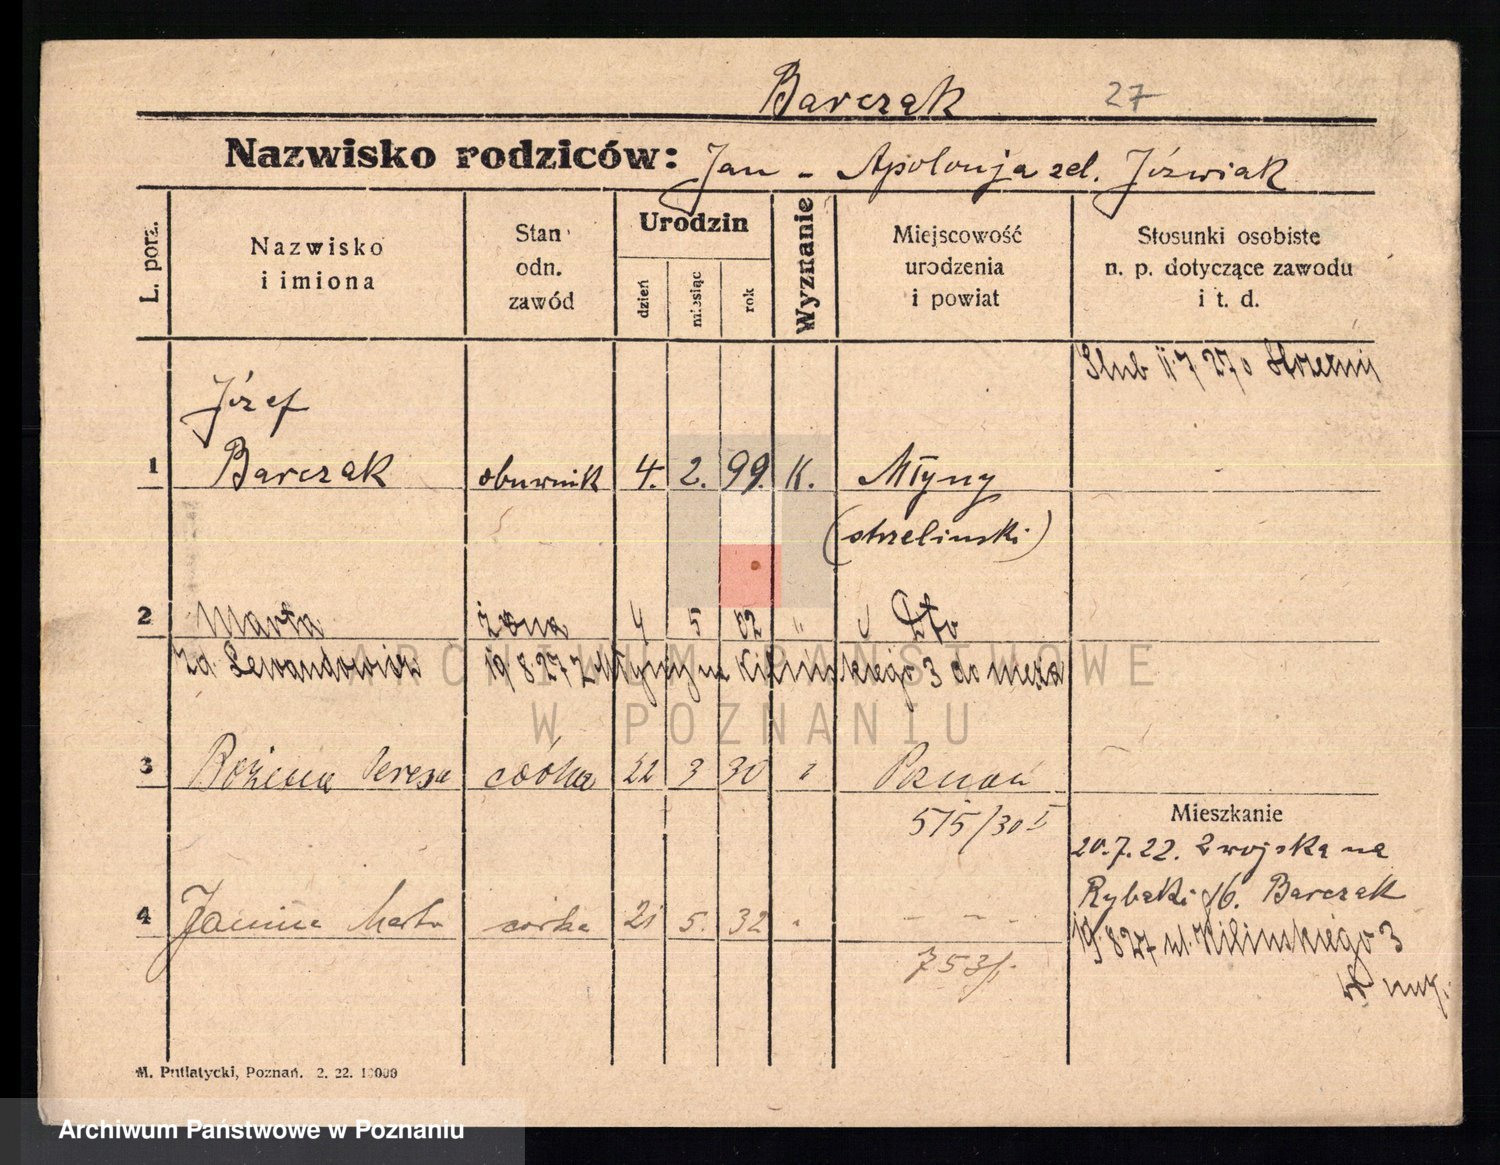 Barczak 27
Nazwisko rodziców: Jan - Apolonja zd. Jóźwiak
L. porz.
Nazwisko
i imiona
Stan
odn.
zawód
Urodzin
dzień
miesiąc
rok
Wyznanie
Miejscowość
urodzenia
i powiat
Stosunki osobiste
n. p. dotyczące zawodu
i t. d.
Ślub 7 27
Józef
1 Barczak obuwnik 4. 2. 99. K. Młyny
(strzeliński)
2 Marta żona 4 5 02 " Dto
zd. Lewandowicz 19.8.27 z Młyny na Kilińskiego 3 do męża
3 Bożena Teresa córka 22 3 30 Poznań
515/30 I
Mieszkanie
20.7.22. Z wojska na
Rybaki Barczak
4 Janina Marta córka 21 5. 32 - - -
19.8.27 ul. Kilińskiego 3
753/
M. Putiatycki, Poznań. 2. 22. 10000
ARCHIWUM PAŃSTWOWE
W POZNANIU
Archiwum Państwowe w Poznaniu